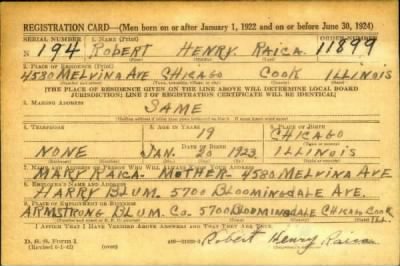 REGISTRATION CARD—(Men born on or after January 1, 1922 and on or before June 30, 1924)
SERIAL NUMBER 1. NAME (Print) ORDER NUMBER
N 194 ROBERT HENRY RAICA 11899
(First) (Middle) (Last)
2. PLACE OF RESIDENCE (Print)
4580 MELVINA AVE CHICAGO COOK ILLINOIS
[THE PLACE OF RESIDENCE GIVEN ON THE LINE ABOVE WILL DETERMINE LOCAL BOARD
JURISDICTION; LINE 2 OF REGISTRATION CERTIFICATE WILL BE IDENTICAL]
3. MAILING ADDRESS
SAME
4. TELEPHONE 5. AGE IN YEARS 6. PLACE OF BIRTH
19 CHICAGO
DATE OF BIRTH
NONE JAN. 20 1923 ILLINOIS
7. NAME AND ADDRESS OF PERSON WHO WILL ALWAYS KNOW YOUR ADDRESS
MARY RAICA - MOTHER - 4580 MELVINA AVE
8. EMPLOYER'S NAME AND ADDRESS
HARRY BLUM. 5700 BLOOMINGDALE AVE.
9. PLACE OF EMPLOYMENT OR BUSINESS
ARMSTRONG BLUM. CO. 5700 BLOOMINGDALE CHICAGO COOK ILL.
I AFFIRM THAT I HAVE VERIFIED ABOVE ANSWERS AND THAT THEY ARE TRUE.
D. S. S. Form 1
(Revised 6-1-42) Robert Henry Raica